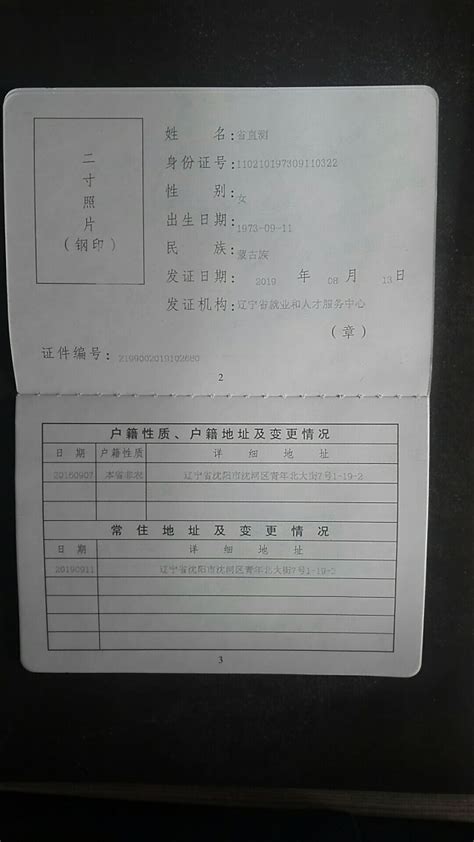 二
寸
照
片
(钢印)
姓 名:省直测
身份证号:110210197309110322
性 别:女
出生日期:1973-09-11
民 族:蒙古族
发证日期: 2019 年 08 月 13日
发证机构:辽宁省就业和人才服务中心
(章)
证件编号: 2199002019102680
2
户籍性质、户籍地址及变更情况
日 期 户籍性质 详 细 地 址
20160907 本省非农 辽宁省沈阳市沈河区青年北大街7号1-19-2
常 住 地 址 及 变 更 情 况
日 期 详 细 地 址
20190911 辽宁省沈阳市沈河区青年北大街7号1-19-2
3